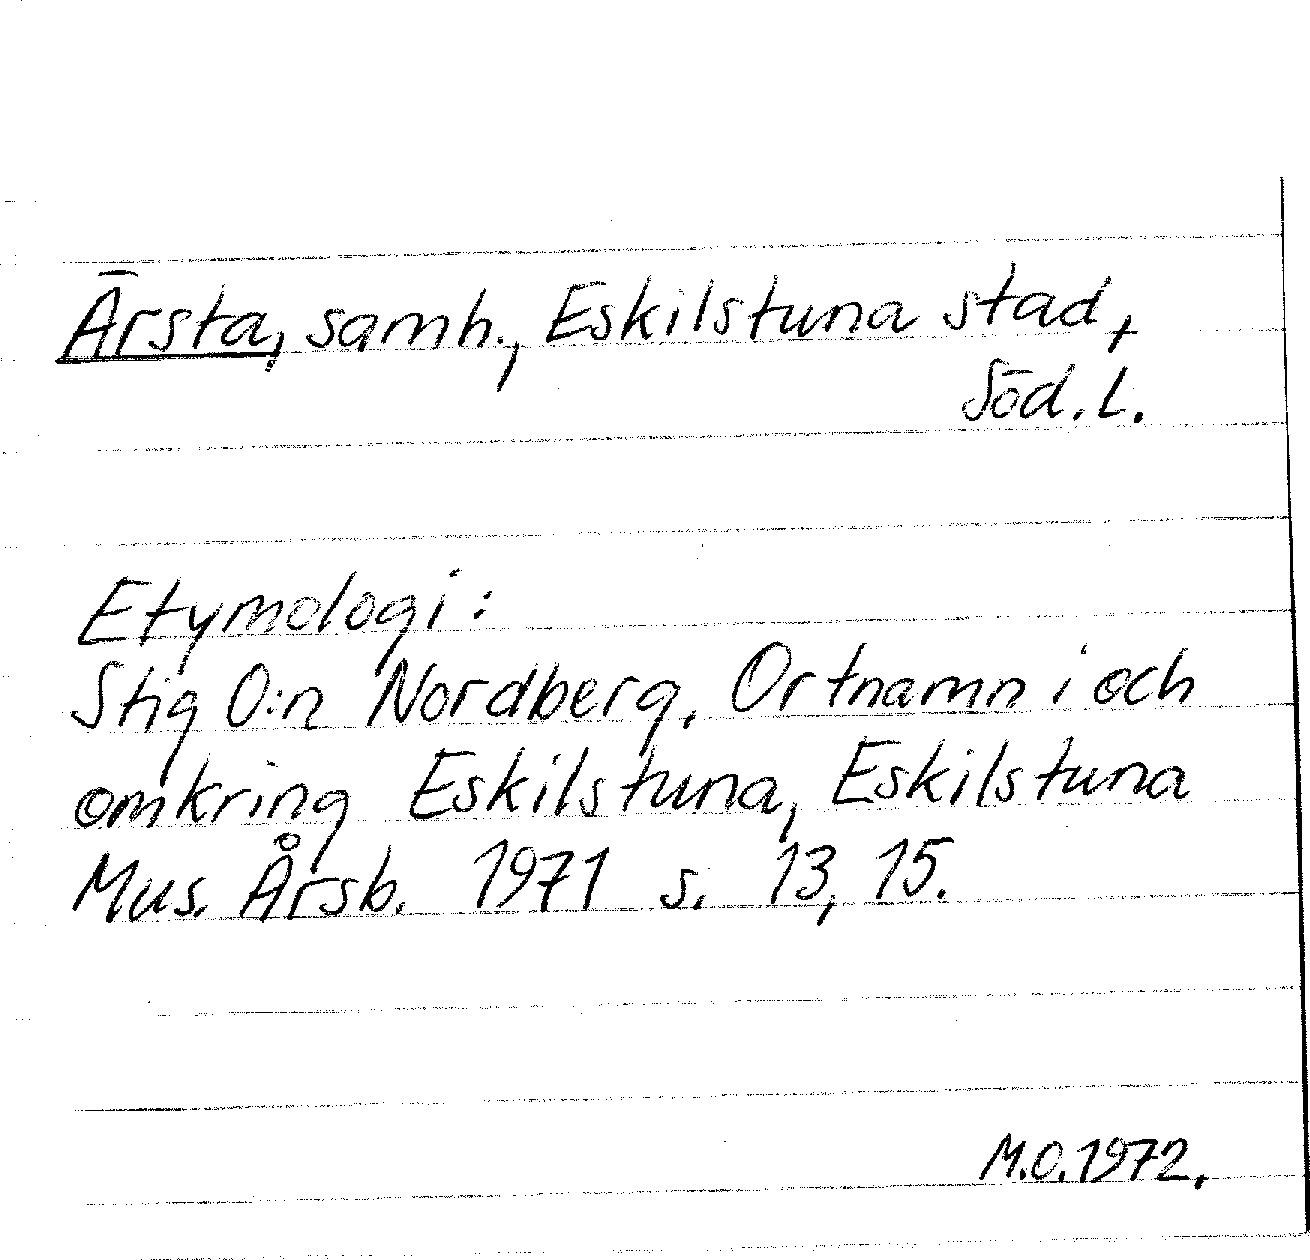 Ārsta, samh., Eskilstuna stad,
Söd. L.
Etymologi:
Stig O:n Nordberg, Ortnamn i och
omkring Eskilstuna, Eskilstuna
Mus. Årsb. 1971 s. 13, 15.
M.O. 1972.